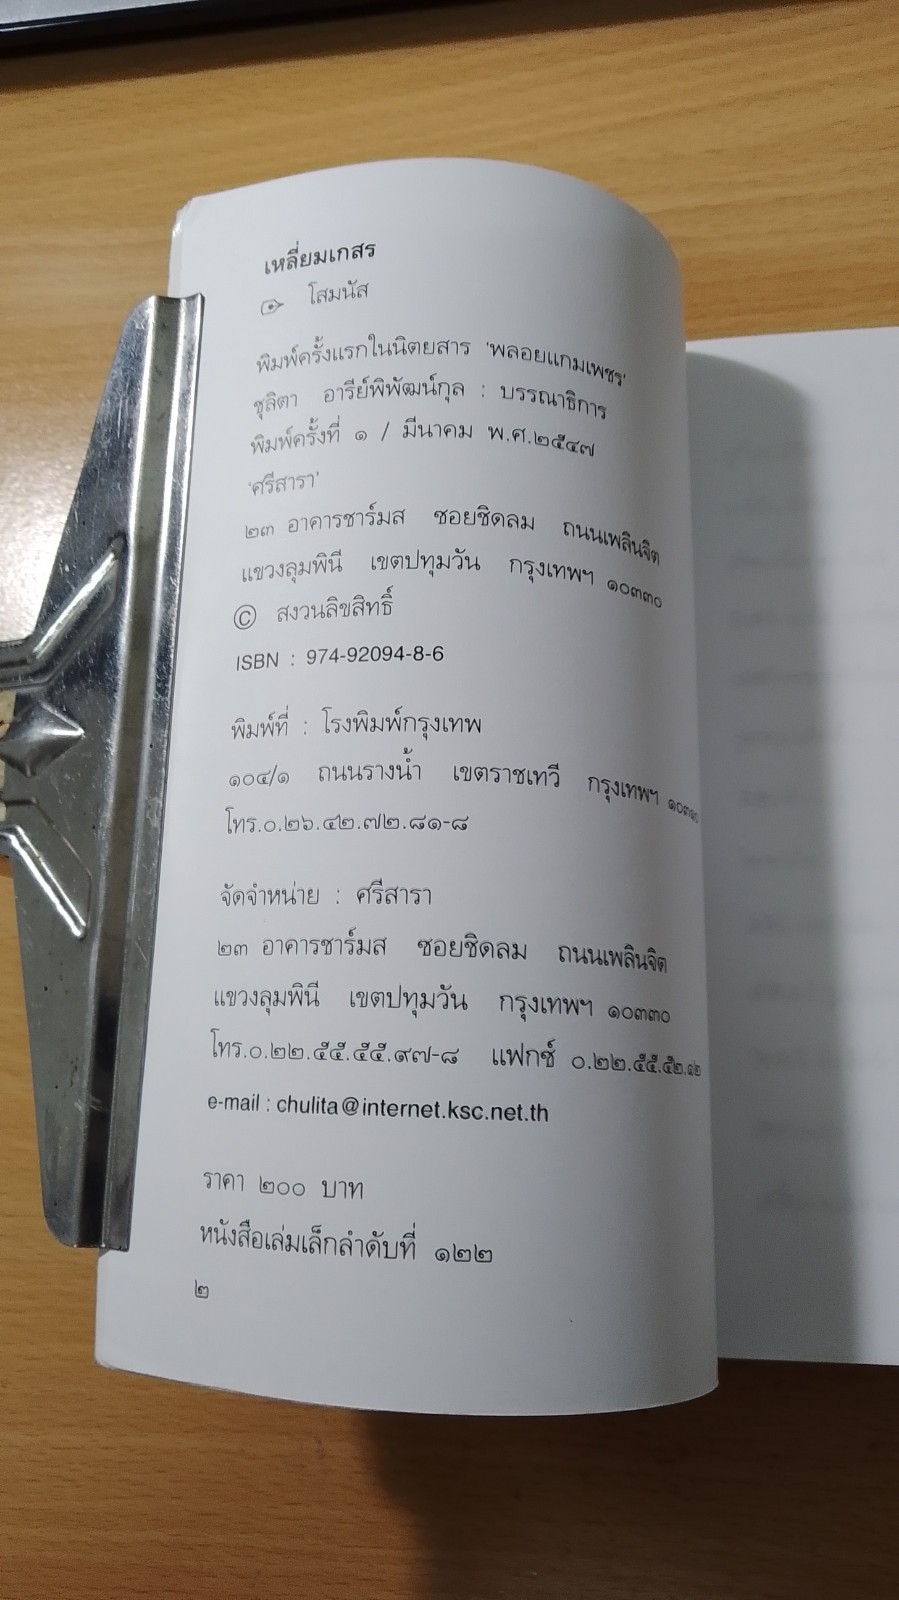 เหลี่ยมเกสร
โสมนัส
พิมพ์ครั้งแรกในนิตยสาร 'พลอยแกมเพชร'
ชุลิตา อารีย์พิพัฒน์กุล : บรรณาธิการ
พิมพ์ครั้งที่ ๑ / มีนาคม พ.ศ.๒๕๔๗
'ศรีสารา'
๒๓ อาคารชาร์มส ซอยชิดลม ถนนเพลินจิต
แขวงลุมพินี เขตปทุมวัน กรุงเทพฯ ๑๐๓๓๐
© สงวนลิขสิทธิ์
ISBN : 974-92094-8-6
พิมพ์ที่ : โรงพิมพ์กรุงเทพ
๑๐๔/๑ ถนนรางน้ำ เขตราชเทวี กรุงเทพฯ
โทร.๐.๒๖.๔๒.๗๒.๘๑-๘
จัดจำหน่าย : ศรีสารา
๒๓ อาคารชาร์มส ซอยชิดลม ถนนเพลินจิต
แขวงลุมพินี เขตปทุมวัน กรุงเทพฯ ๑๐๓๓๐
โทร.๐.๒๒.๕๕.๕๕.๙๗-๘ แฟกซ์ ๐.๒๒.๕๕.๕๒.๑๒
e-mail : chulita@internet.ksc.net.th
ราคา ๒๐๐ บาท
หนังสือเล่มเล็กลำดับที่ ๑๒๒
๒